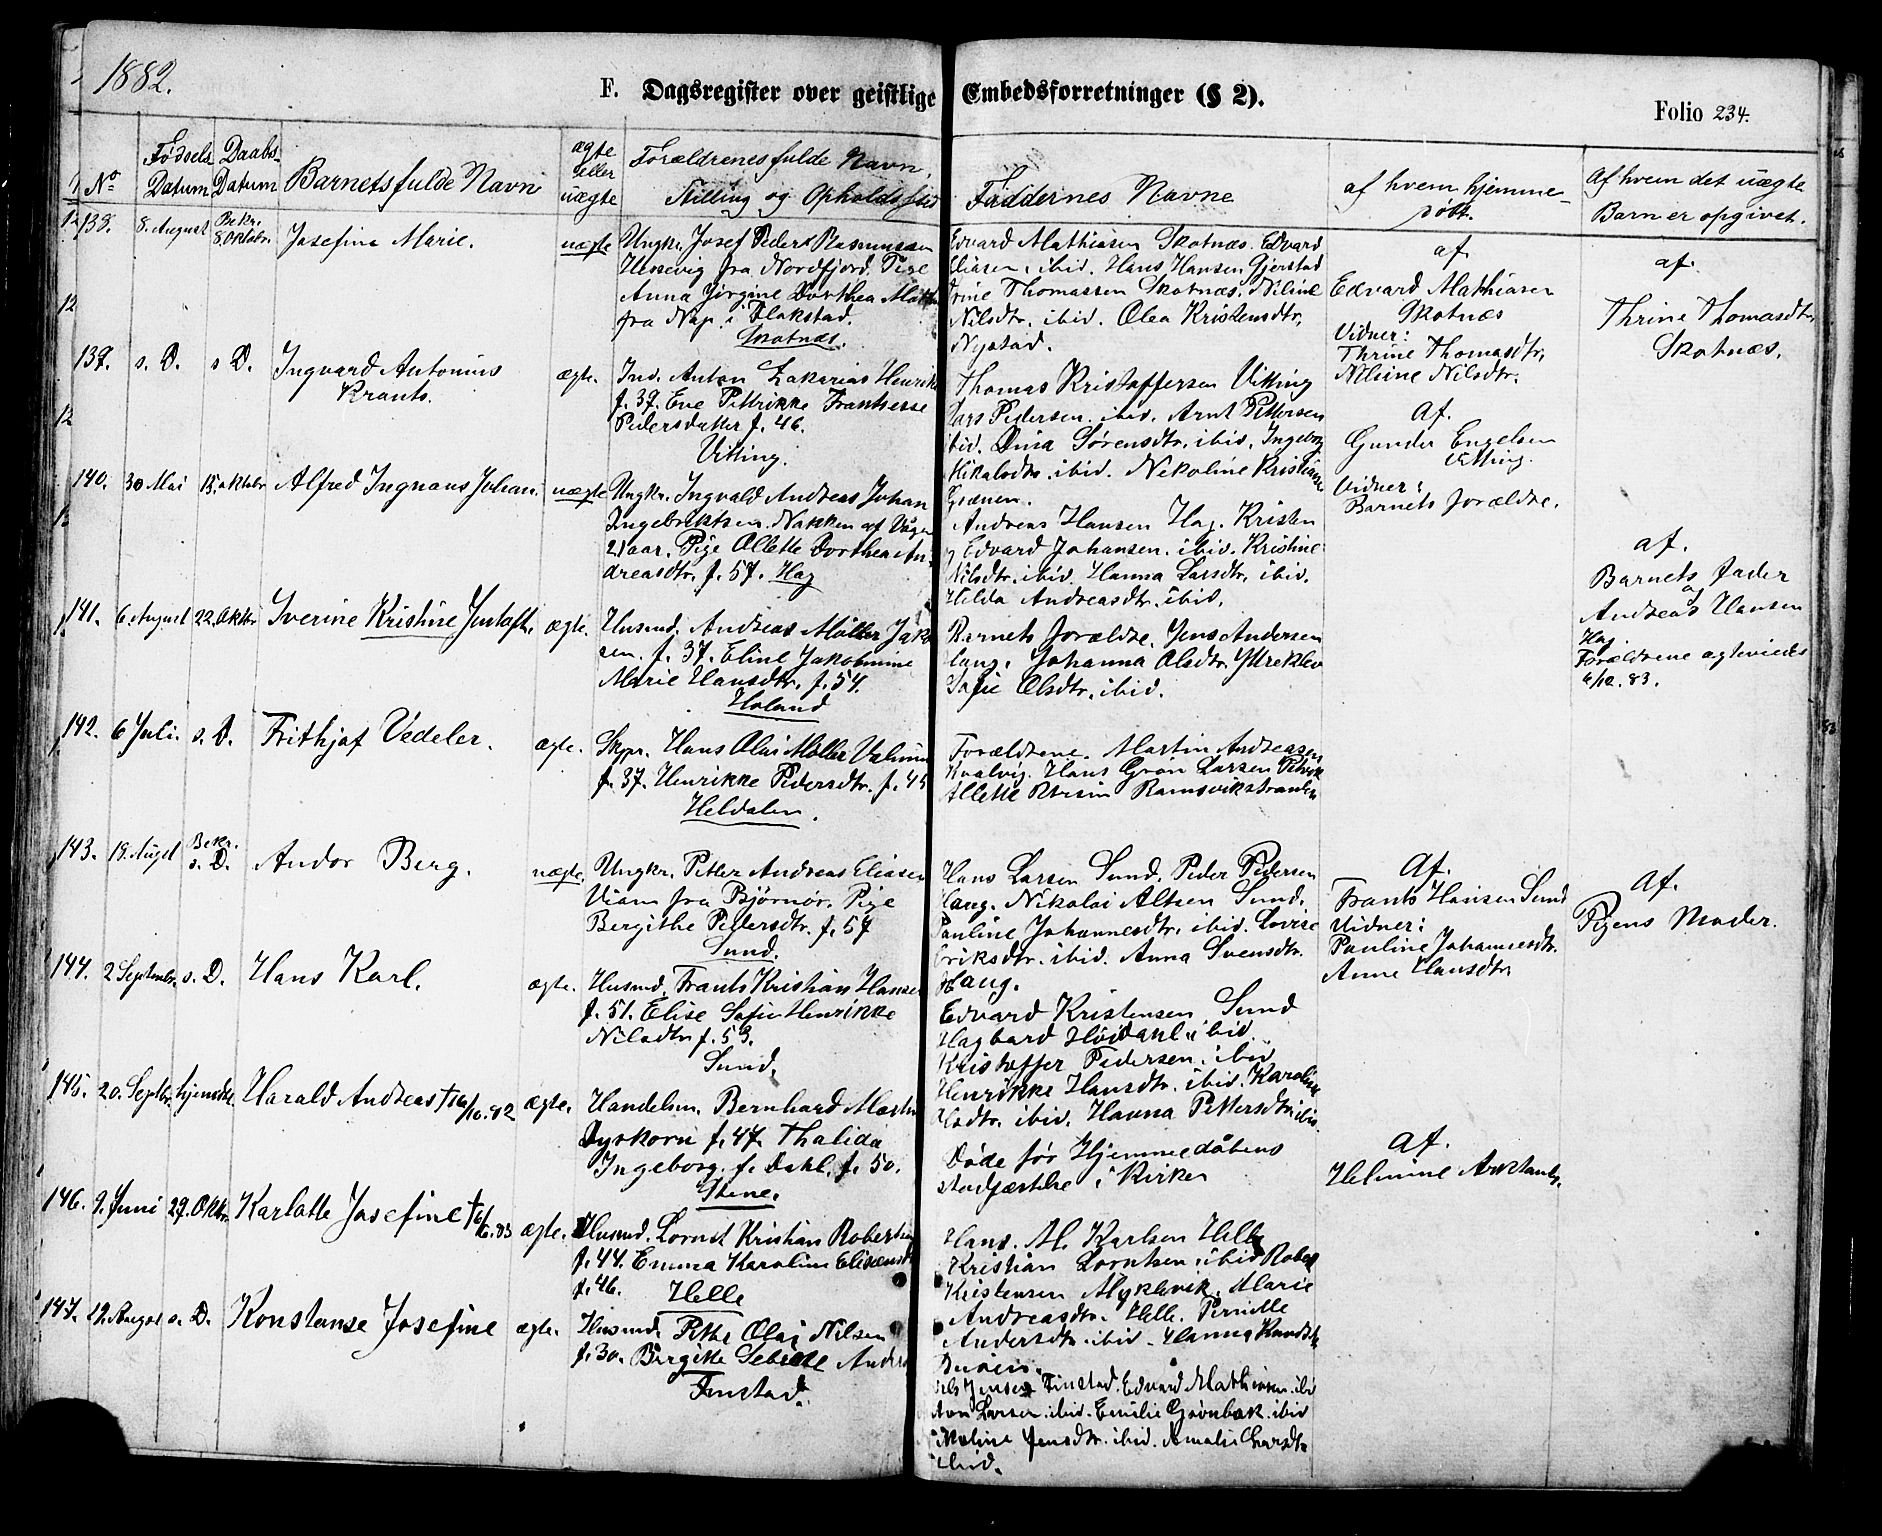 1882.
F. Dagsregister over geistlige Embedsforretninger (§ 2).
Folio 234.
No
Fødsels Datum
Daabs- Datum
Barnets fulde Navn
ægte eller uægte
Forældrenes fulde Navn,
Stilling og Opholdssted
Faddernes Navne
af hvem hjemme-
døbt.
Af hvem det uægte
Barn er opgivet.
138. 8. August Bekr. 8. Oktobr. Josefine Marie. uægte
Ungkr. Josef Peder Rasmussen
fra Nordfjord. Pige
Anna Jørgine Dorthea
fra Nap i Flakstad.
Skotnæs.
Edvard Mathiasen Skotnæs. Edvard
Eliasen, ibid. Hans Hansen Gjerstad
Trine Thomassen Skotnæs. Niline
Nilsdtr. ibid. Olea Kristensdtr.
Nystad.
af
Edvard Mathiasen
Skotnæs
Vidner:
Thrine Thomasdtr.
Niline Nilsdtr.
af.
Thrine Thomasdtr.
Skotnæs.
139. s. D. s. D. Ingvard Antonius
Krants.
ægte.
Ind. Anton Zakarias Henrik
f. 39. Eve Pettrikke Frantsesse
Pedersdatter f. 46.
Vitting.
Thomas Kristoffersen Vitting
Lars Pedersen. ibid. Arnt Pettersen
ibid. Dina Sørensdtr. ibid. Ingeborg
Mikalsdtr. ibid. Nekoline Kristians
Grænen.
Af.
Gunder Engelsen
Vitting.
Vidner:
Barnets Forældre.
140. 30 Mai 15. oktobr Alfred Ingvans Johan. uægte
Ungkr. Ingvald Andreas Johan
Ingebriktsen Nakken af Vågan
21 aar. Pige Ollette Dorthea An-
dreasdtr. f. 57. Hag
Andreas Hansen Hag. Kristen
Edvard Johansen. ibid. Kristine
Nilsdtr. ibid. Hanna Larsdtr. ibid.
Hilda Andreasdtr. ibid.
af.
Barnets Fader
af
Andreas Hansen
Hag.
Forældrene ægteviedes
6/10. 83.
141. 6. August 22. Oktbr Iverine Kristine ægte.
Husmd. Andreas Møller Jako
sen. f. 37. Eline Jakobmine
Marie Hansdtr. f. 54.
Holand
Barnets Forældre. Jens Andersen
Haug. Johanna Olsdtr. Yttreklev
Sofie Olsdtr. ibid.
142. 6 Juli. s. D. Frithjof Vedeler. ægte.
Skpr. Hans Olai Møller
f. 37. Henrikke Pedersdtr. f. 45
Heldalen.
Forældrene. Martin Andreasen
Kvalvig. Hans Grøn Larsen Petvik
Ramsvikstranden
143. 19. Augst Bekr. s. D. Andor Berg. uægte.
Ungkr. Petter Andreas Eliasen
fra Bjørnør. Pige
Bergithe Pedersdtr. f. 57
Sund.
Hans Larsen Sund. Peder Pedersen
Haug. Nikolai Altsen Sund.
Pauline Johannesdtr. ibid. Lovise
Eriksdtr. ibid. Anna Svensdtr.
Haug.
Af.
Frants Hansen Sund
Vidner:
Pauline Johannesdtr.
Anne Hansdtr
Af.
Pigens Moder.
144. 2 Septembr. s. D. Hans Karl. ægte.
Husmd. Frants Kristian Hansen
f. 51. Elise Sofie Henrikke
Nilsdtr f. 53.
Sund.
Edvard Kristensen Sund
Hagbard Høidahl. ibid
Kristoffer Pedersen. ibid
Henrikke Hansdtr. ibid. Karoline
Olsdtr. ibid. Hanna Pettersdtr. ibid.
145. 20. Septbr. hjemdbt. Harald Andreas † 16/10. 82 ægte.
Handelsm. Bernhard Martin
Dyrkorn f. 47. Thalida
Ingeborg. f. Dahl. f. 50.
Stene.
Døde før Hjemmedåbens
stadfæstelse i Kirken
Af.
Helmine
146. 9. Juni 29. Oktbr. Karlotte Josefine † 6/6. 83 ægte.
Husmd. Lornst Kristian Robertsen
f. 44. Emma Karoline
f. 46. Helle
Hans. M. Karlsen Helle
Kristian Lorntsen. ibid Robert
Kristensen Myklevik. Marie
Andreasdtr. Helle. Pernille
Andersdtr. ibid. Hanna
147. 19. August s. D. Konstanse Josefine ægte.
Husmd. Petter Olai Nilsen
f. 30. Birgitte
Finstad.
Nils Jensen Finstad. Edvard Mathiasen. ibid
Larsen. ibid. Emilie Grønbæk. ibid
Maline Jensdtr. ibid. Amalie
ibid.